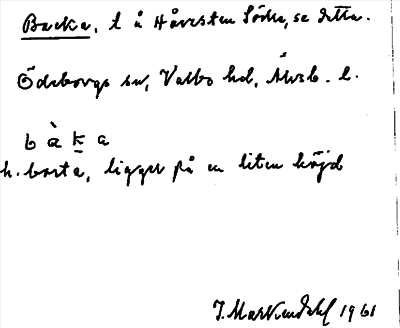 Backa, t å Håvesten Södra, se detta.
Ödeborgs sn, Valbo hd, Älvsb. l.
b à k a
h. borta, ligger på en liten höjd
J. Markendahl 1961